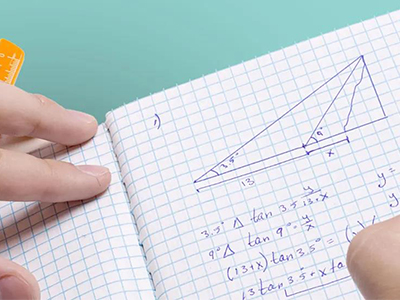 1)
3.5°
9
13
x
y =
3.5° Δ tan 3.5 y/13+x
9° Δ tan 9° = y/x
(13+x) tan 3.5° = (
13 tan 3.5 + x tan